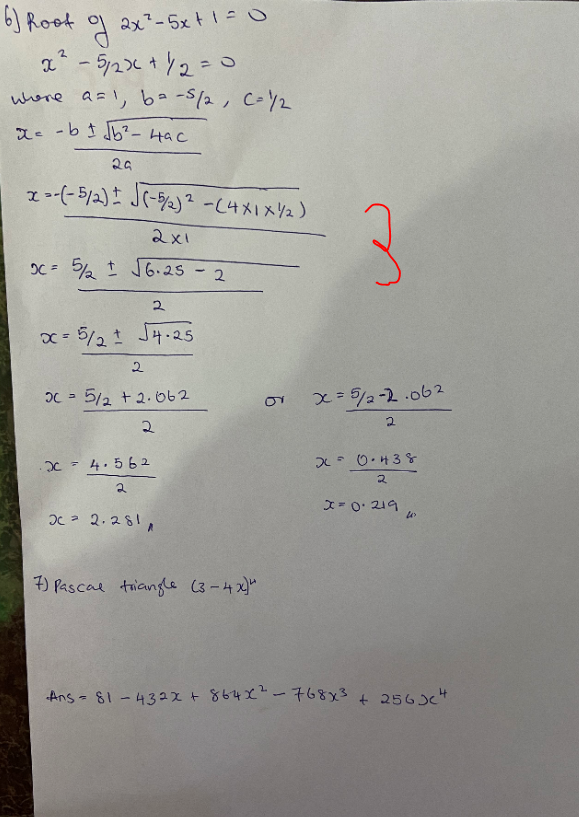 6) Root of 2x² - 5x + 1 = 0
x² - 5/2x + 1/2 = 0
where a = 1, b = -5/2, c = 1/2
x = -b ± √b² - 4ac
2a
x = -(-5/2) ± √(-5/2)² - (4x1x1/2)
2x1
3
x = 5/2 ± √6.25 - 2
2
x = 5/2 ± √4.25
2
x = 5/2 + 2.062 or x = 5/2 - 2.062
2 2
x = 4.562 x = 0.438
2 2
x = 2.281 x = 0.219
7) Pascal triangle (3 - 4x)⁴
Ans = 81 - 432x + 864x² - 768x³ + 256x⁴